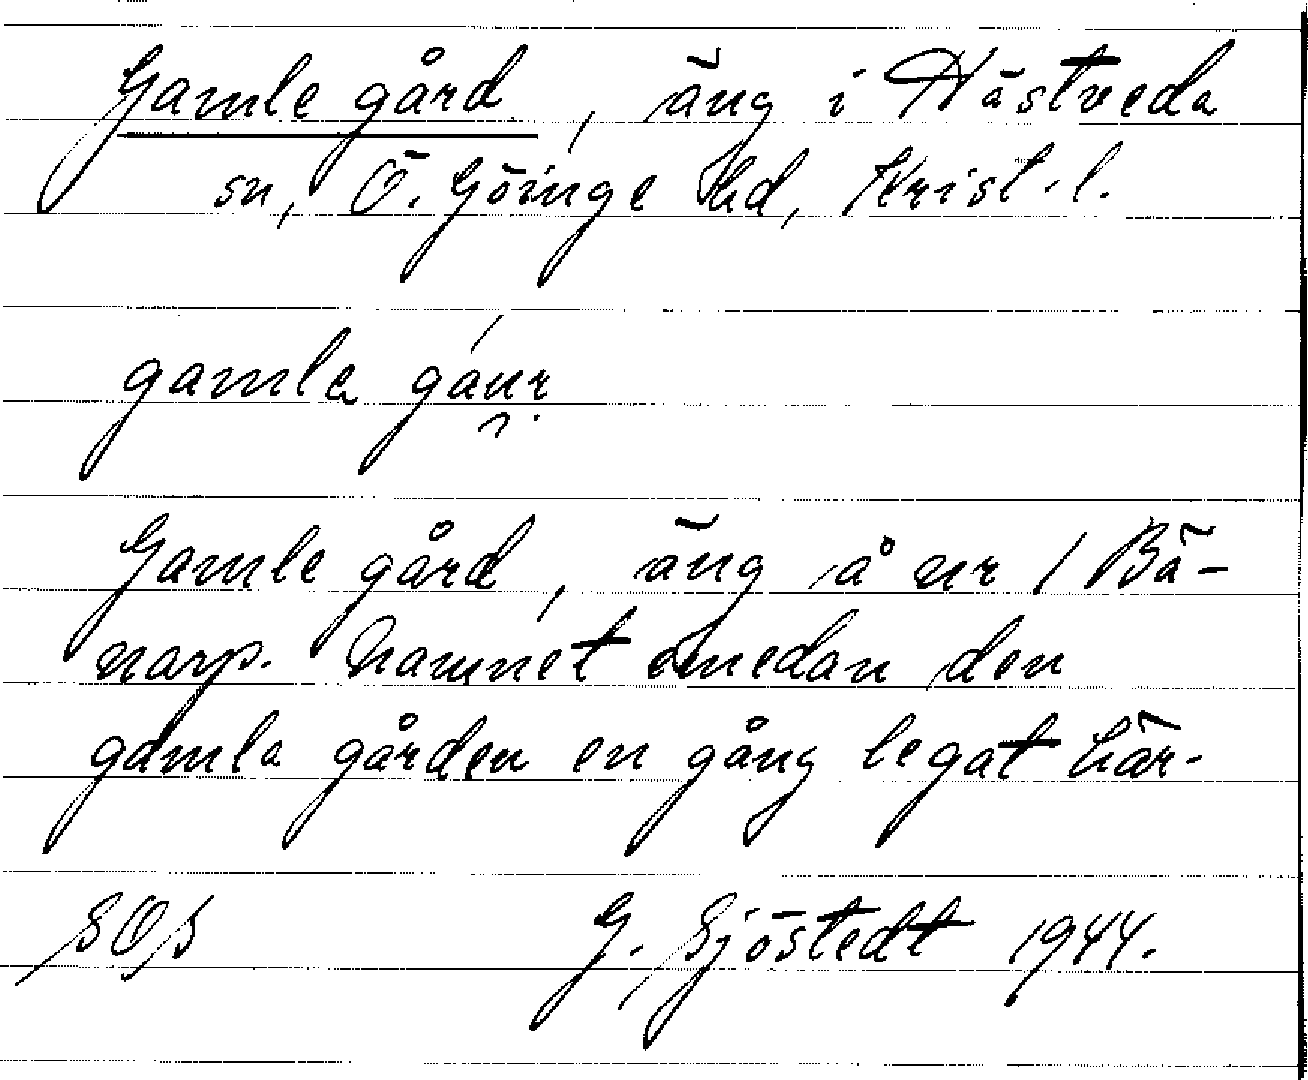 Gamle gård, äng i Hästveda
sn, Ö. Göinge hd, Krist. l.
gamla gáu̯r
Gamle gård, äng å nr 1 Bä-
narp. Namnet emedan den
gamla gården en gång legat här.
SOS G. Sjöstedt 1944.